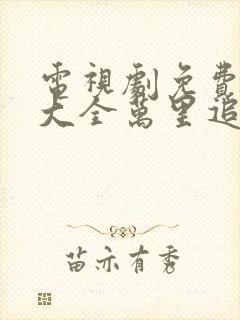 電視劇免費
大全萬里追
苗亦有秀